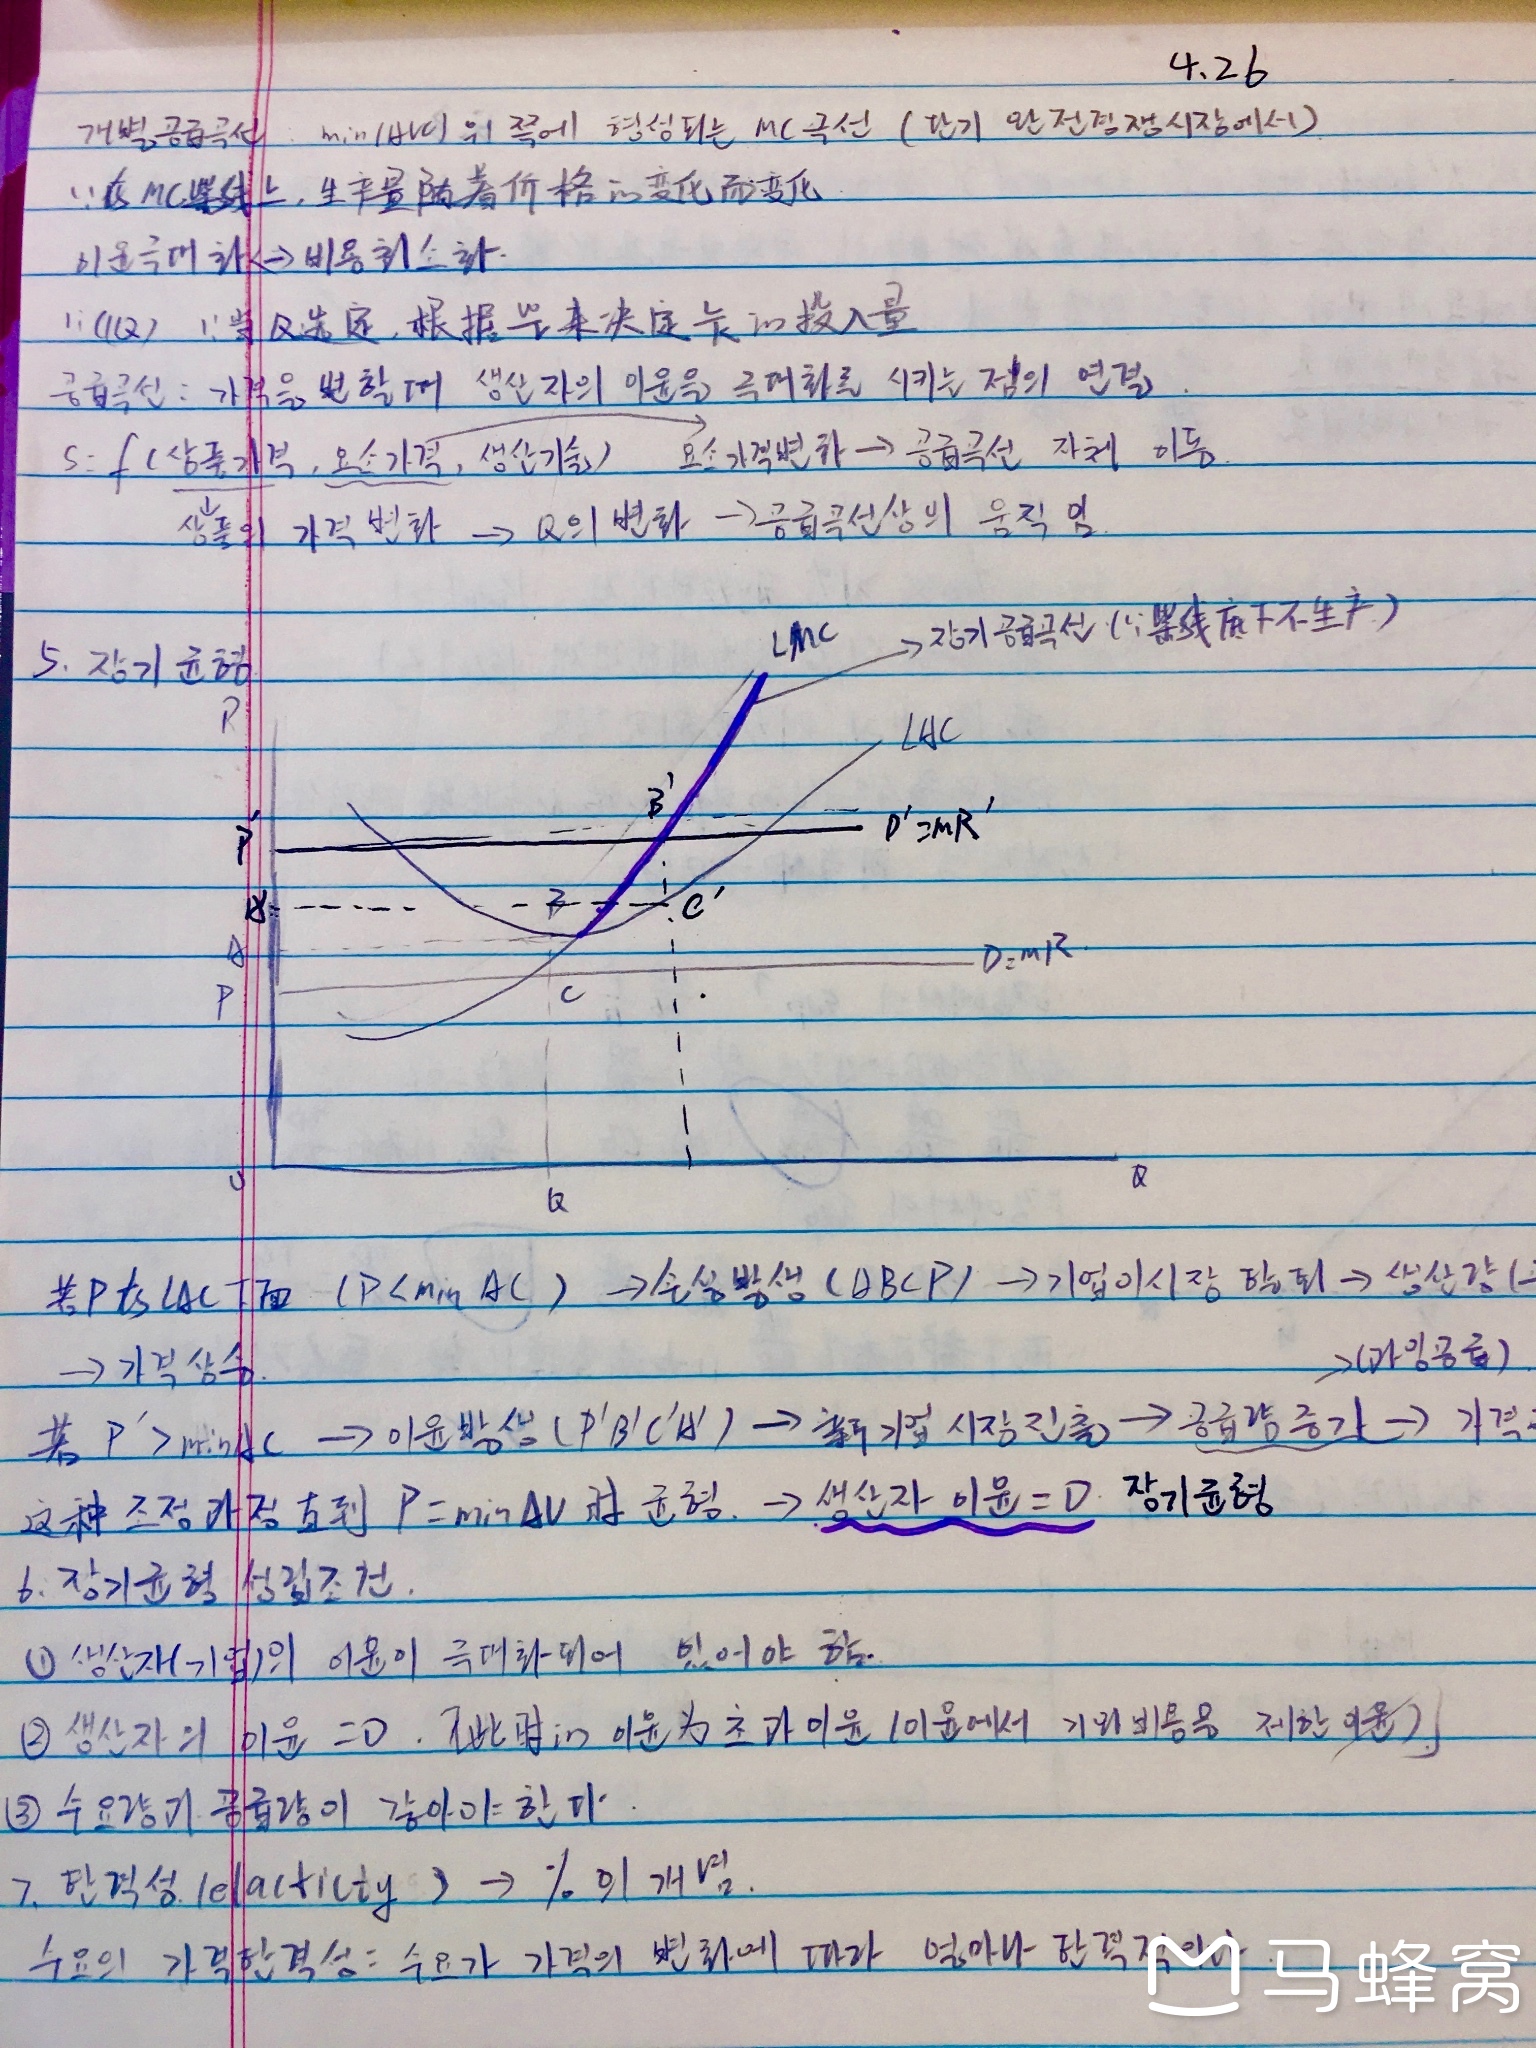 4.26
개별공급곡선 : min(AVC) 위쪽에 형성되는 MC곡선 (단기 완전경쟁시장에서)
∵在MC紫线上,生产量随着价格的变化而变化
이윤극대화<->비용최소화.
Q先定,根据 来决定 的投入量
공급곡선: 가격을 변할때 생산자의 이윤을 극대화로 시키는 점의 연결.
S=f(상품가격, 요소가격, 생산기술) 요소가격변화→공급곡선 자체 이동.
상품의 가격변화 → Q의 변화 →공급곡선상의 움직임.
5. 장기균형
LMC
→장기공급곡선 (∵紫线底下不生产)
LAC
B'
P'
D'=MR'
C'
A
D=MR
P
C
Q
Q
若P在LAC下面 (P<min AC) →손실발생(ABCP) →기업이시장 탈퇴→ 생산량
→가격상승.
→(과잉공급)
若 P'>minAC →이윤발생(P'B'C'A') → 기업 시장진출→공급량증가→ 가격
这种 조정과정直到 P=minAV 时 균형. →생산자 이윤=0. 장기균형
6. 장기균형 성립조건.
① 생산자(기업)의 이윤이 극대화되어 있어야 함.
② 생산자의 이윤 =0. 이윤为초과이윤(이윤에서 기회비용을 제한 이윤)
③ 수요량과 공급량이 같아야한다.
7. 탄력성 (elacticity) → %의 개념.
수요의 가격탄력성: 수요가 가격의 변화에 따라 얼마나 탄력적이냐.
马蜂窝